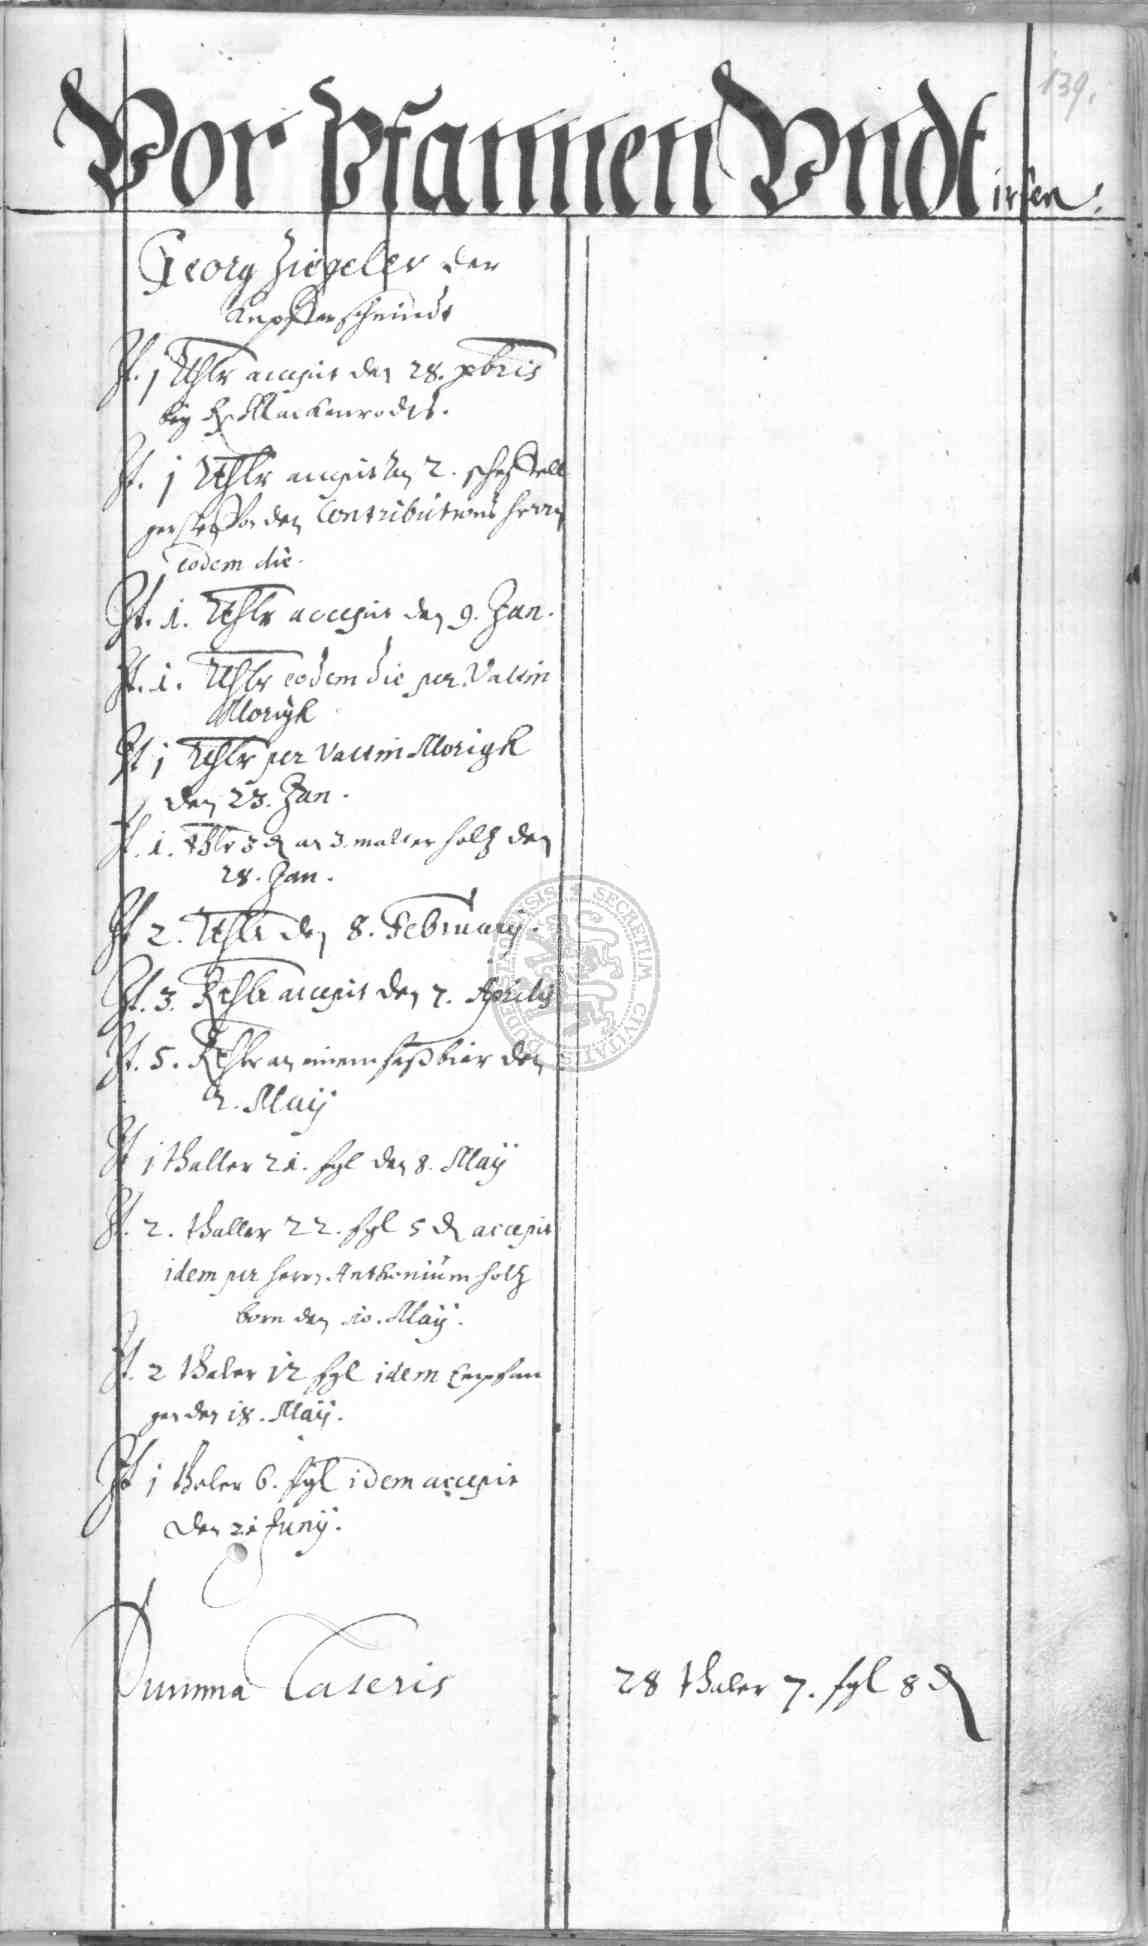 139.
Vor Pfannen Vndt
Georg Ziegeler der
Kupfferschmidt
It. j Rthlr accepit den 28. xbris
bey H. Mackenrodts.
It. j Rthlr accepit an 2. scheffell
gersten von den Contributions herrn
eodem die.
It. 1. Rthlr accepit den 9. Jan.
It. 1. Rthlr eodem die per Valtin
Morigk
It j Rthlr per Valtin Morigk
den 23. Jan.
It. 1. thlr 3 d an 3. malter holtz den
28. Jan.
It 2. Rthlr den 8. February.
It. 3. Rthlr accepit den 7. Aprilis
It. 5. Rthlr an einem faß bier den
2. Maij
It j thaller 21. sgl den 8. Maij
It. 2. thaller 22. sgl 5 d accepit
idem per herrn Anthonium holtz
born den 10. Maij.
It. 2 thaler 12 sgl idem empfan
gen den 18. Maij.
It j thaler 6. sgl idem accepit
den 21 Junij.
Summa Lateris 28 thaler 7. sgl 8 d
SECRETUM CIVITATIS DUDERSTADENSIS